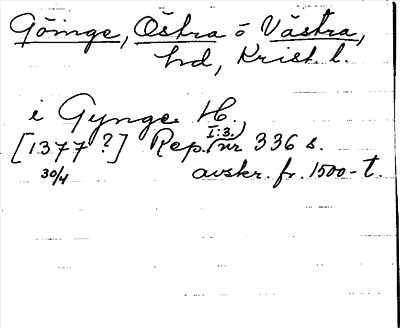 Göinge, Östra o Västra,
hd, Krist. l.
i Gynge H.
[1377 ?] Rep. I:3, nr 336 s.
30/4 avskr. fr. 1500-t.